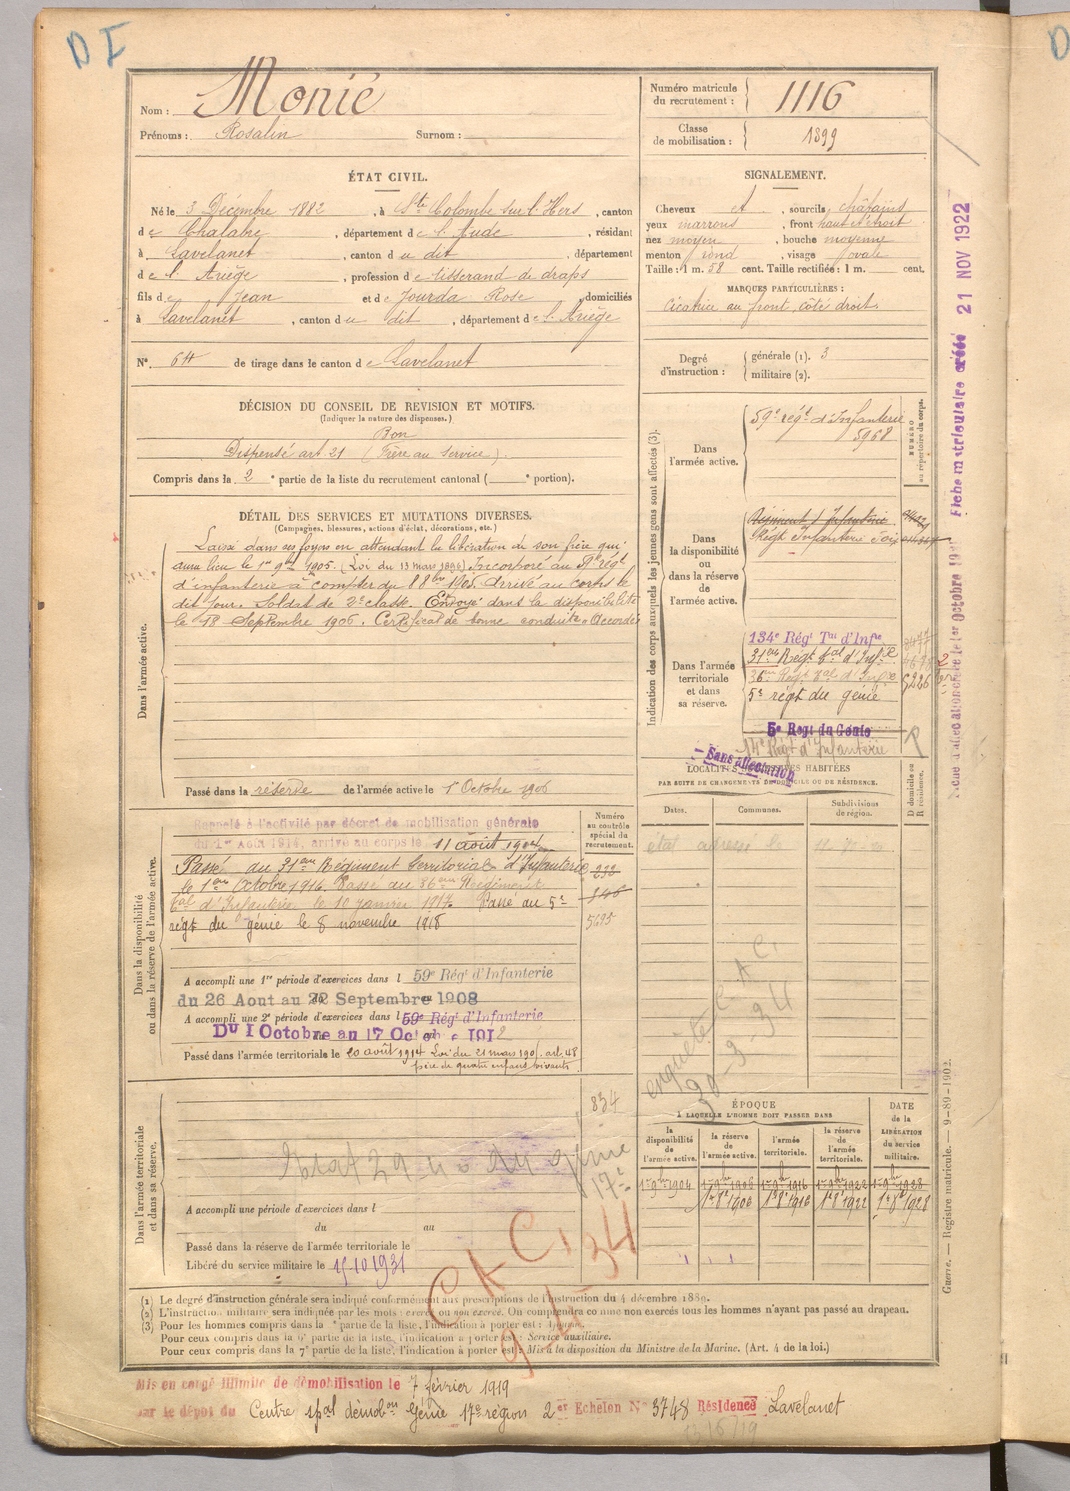 D I
Monié
Nom :
Prénoms : Rosalin Surnom :
Numéro matricule du recrutement : 1116
Classe de mobilisation : 1899
ÉTAT CIVIL.
Né le 3 Décembre 1882, à Ste Colombe sur l'Hers, canton
de Chalabre, département de l'Aude, résidant
à Lavelanet, canton du dit, département
de l'Ariège, profession de tisserand de draps
fils de Jean et de Jourda Rose, domiciliés
à Lavelanet, canton du dit, département de l'Ariège
N° 64 de tirage dans le canton de Lavelanet
SIGNALEMENT.
Cheveux et, sourcils châtains
yeux marrons, front haut et étroit
nez moyen, bouche moyenne
menton rond, visage ovale
Taille : 1 m. 58 cent. Taille rectifiée : 1 m. cent.
MARQUES PARTICULIÈRES :
Cicatrice au front, côté droit.
Degré d'instruction : générale (1). 3
militaire (2).
DÉCISION DU CONSEIL DE REVISION ET MOTIFS.
(Indiquer la nature des dispenses.)
Bon
Dispensé art. 21 (Frère au service).
Compris dans la 2e partie de la liste du recrutement cantonal ( e portion).
DÉTAIL DES SERVICES ET MUTATIONS DIVERSES.
(Campagnes, blessures, actions d'éclat, décorations, etc.)
Dans l'armée active.
Laissé dans ses foyers en attendant la libération de son frère qui
aura lieu le 1er 9bre 1905. (Loi du 13 mars 1896) Incorporé au 59e régt
d'infanterie à compter du 8 8bre 1905. Arrivé au corps le
dit jour. Soldat de 2e classe. Envoyé dans la disponibilité
le 18 Septembre 1906. Certificat de bonne conduite "Accordé"
Passé dans la réserve de l'armée active le 1er Octobre 1906
Indication des corps auxquels les jeunes gens sont affectés (3).
Dans l'armée active.
59e régt d'Infanterie
5968
NUMÉRO au répertoire du corps.
Dans la disponibilité ou dans la réserve de l'armée active.
Régiment d'Infanterie
Régt Infanterie Foix
Dans l'armée territoriale et dans sa réserve.
134e Régt Tal d'Infie
31eme Régt Tal d'Infie
36eme Régt Tal d'Infie 5226
5e régt du génie
5e Regt du Génie
14e Régt d'Infanterie
Sans affectation
LOCALITÉS SUCCESSIVES HABITÉES
PAR SUITE DE CHANGEMENTS DE DOMICILE OU DE RÉSIDENCE.
Dates. Communes. Subdivisions de région. D domicile ou R résidence.
état adressé le
enquête C A C.
20-3-34
Dans la disponibilité ou dans la réserve de l'armée active.
Numéro au contrôle spécial du recrutement.
Rappelé à l'activité par décret de mobilisation générale
du 1er Août 1914, arrivé au corps le 11 août 1914
Passé au 31eme Régiment territorial d'Infanterie
le 1er Octobre 1916. Passé au 36eme Régiment
Tal d'Infanterie le 10 janvier 1917. Passé au 5e
régt du génie le 8 novembre 1918
5695
A accompli une 1re période d'exercices dans l 59e Régt d'Infanterie
du 26 Aout au 22 Septembre 1908
A accompli une 2e période d'exercices dans l 59e Régt d'Infanterie
Du 1 Octobre au 17 Octobre 1912
Passé dans l'armée territoriale le 20 août 1914 Loi du 21 mars 1905. art. 48
père de quatre enfants vivants.
Dans l'armée territoriale et dans sa réserve.
834
17e
A accompli une période d'exercices dans l
du au
Passé dans la réserve de l'armée territoriale le
Libéré du service militaire le 15-10-1931
C A C.
9-4-34
ÉPOQUE
À LAQUELLE L'HOMME DOIT PASSER DANS
DATE de la LIBÉRATION du service militaire.
la disponibilité de l'armée active. la réserve de l'armée active. l'armée territoriale. la réserve de l'armée territoriale.
1er 9bre 1904 1er 9bre 1906 1er 9bre 1916 1er 9bre 1922 1er 9bre 1928
1er 8bre 1906 1er 8bre 1916 1er 8bre 1922 1er 8bre 1928
(1) Le degré d'instruction générale sera indiqué conformément aux prescriptions de l'instruction du 4 décembre 1889.
(2) L'instruction militaire sera indiquée par les mots : exercé ou non exercé. On comprendra comme non exercés tous les hommes n'ayant pas passé au drapeau.
(3) Pour les hommes compris dans la partie de la liste, l'indication à porter est :
Pour ceux compris dans la partie de la liste, l'indication à porter est : Service auxiliaire.
Pour ceux compris dans la 7e partie de la liste, l'indication à porter est : Mis à la disposition du Ministre de la Marine. (Art. 4 de la loi.)
Mis en congé illimité de démobilisation le 7 février 1919
par le dépôt du Centre spal démobon Génie 17e région 2er Echelon N° 3748 Résidence Lavelanet
Fiche matriculaire créée 21 NOV 1922
Guerre. — Registre matricule. — 9-89-1902.